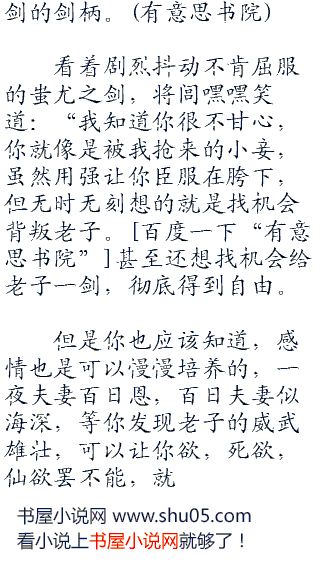 剑的剑柄。(有意思书院)
看着剧烈抖动不肯屈服
的蚩尤之剑，将闾嘿嘿笑
道：“我知道你很不甘心，
你就像是被我抢来的小妾，
虽然用强让你臣服在胯下，
但无时无刻想的就是找机会
背叛老子。[百度一下“有意
思书院”]甚至还想找机会给
老子一剑，彻底得到自由。
但是你也应该知道，感
情也是可以慢慢培养的，一
夜夫妻百日恩，百日夫妻似
海深，等你发现老子的威武
雄壮，可以让你欲，死欲，
仙欲罢不能，就
书屋小说网 www.shu05.com
看小说上书屋小说网就够了！